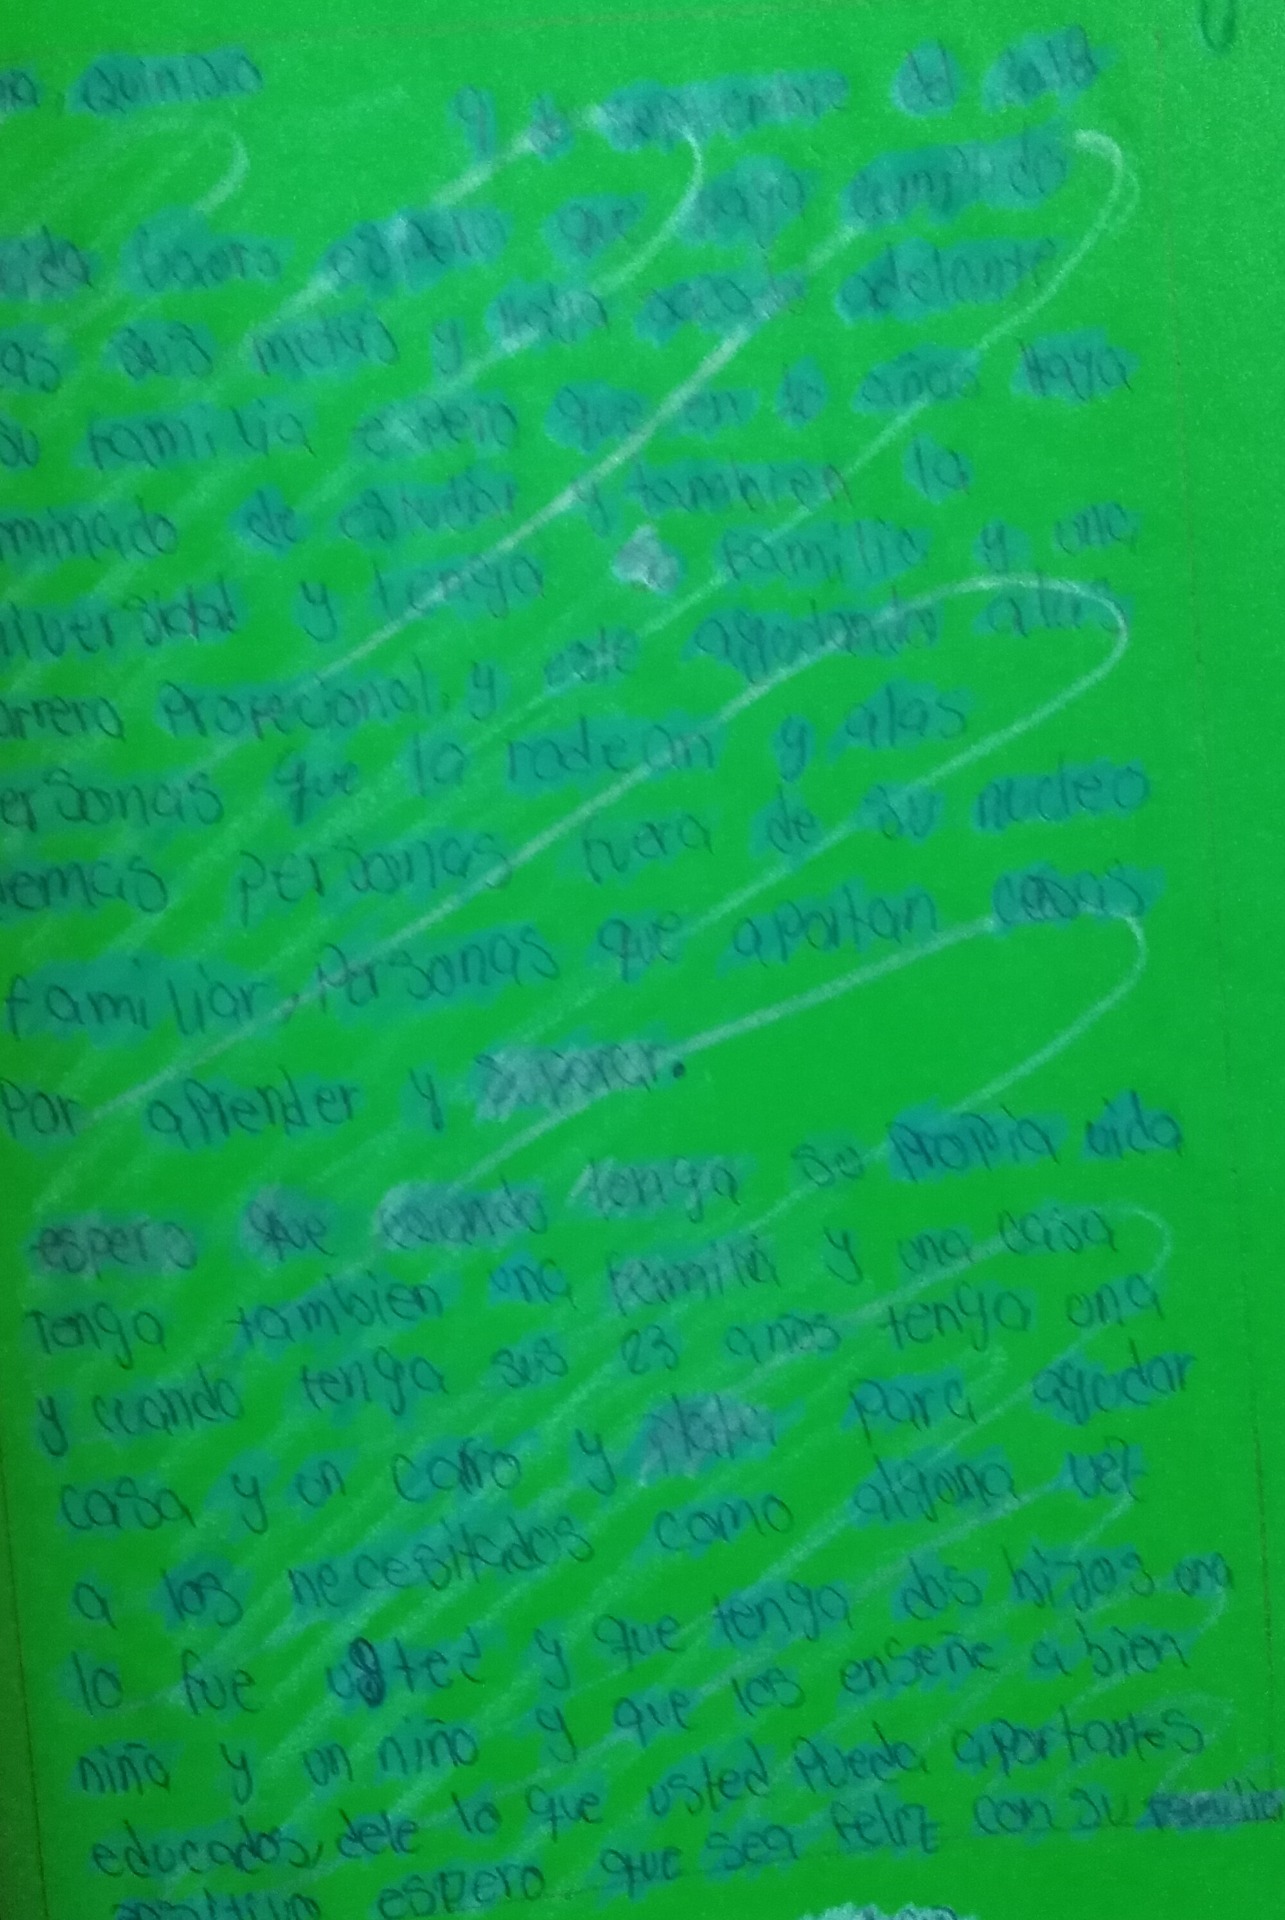 Quindio 9 de septiembre del 2018
espero que haya cumplido
sus metas y haya sacado adelante
su familia espero que en 10 años haya
minado de estudiar y tambien la
iversidad y tenga familia y una
arrera profecional, y este ayudando alas
ersonas que la rodean y alas
emas personas fuera de su nucleo
familiar, personas que aportan cosas
Por aprender y
espero que cuando tenga su propia vida
tenga tambien una familia y una casa
y cuando tenga sus 23 años tenga una
casa y un carro y plata para ayudar
a los necesitados como alguna vez
lo fue usted y que tenga dos hijos una
niña y un niño y que los enseñe a bien
educados, dele lo que usted pueda aportarles
espero que sea feliz con su familia